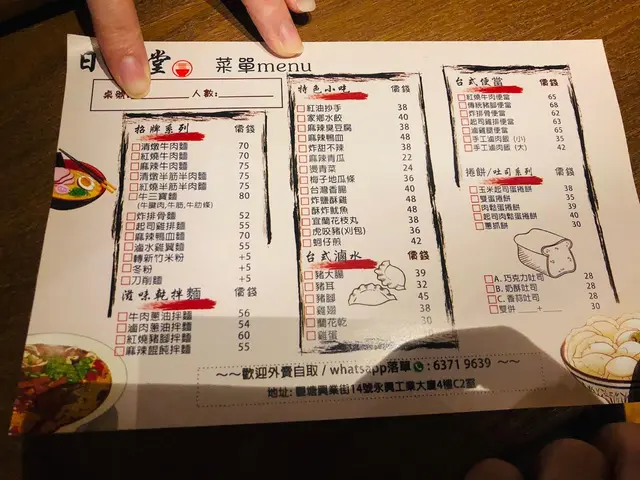 日 堂 菜單menu
人數：
招牌系列 價錢
清燉牛肉麵 70
紅燒牛肉麵 70
麻辣牛肉麵 75
清燉半筋半肉麵 75
紅燒半筋半肉麵 75
牛三寶麵 80
(牛腱肉,牛筋,牛肋條)
炸排骨麵 52
起司雞排麵 55
麻辣鴨血麵 70
滷水雞翼麵 55
轉新竹米粉 +5
冬粉 +5
刀削麵 +5
滋味乾拌麵 價錢
牛肉蔥油拌麵 56
滷肉蔥油拌麵 54
紅燒豬腳拌麵 60
麻辣餛飩拌麵 55
特色小吃 價錢
紅油抄手 38
家鄉水餃 40
麻辣臭豆腐 38
麻辣鴨血 48
炸甜不辣 38
麻辣青瓜 22
燙青菜 24
梅子地瓜條 36
台灣香腸 40
炸鹽酥雞 48
酥炸魷魚 48
宜蘭花枝丸 38
虎咬豬(刈包) 36
蚵仔煎 42
台式滷水 價錢
豬大腸 39
豬耳 32
豬腳 45
雞翅 38
蘭花乾 30
雞蛋
台式便當 價錢
紅燒牛肉便當 65
傳統豬腳便當 68
炸排骨便當 62
起司雞排便當 63
滷雞腿便當 65
手工滷肉飯 (小) 35
手工滷肉飯 (大) 42
捲餅/吐司系列 價錢
玉米起司蛋捲餅 38
雙蛋捲餅 35
肉鬆蛋捲餅 39
起司肉鬆蛋捲餅 40
蔥抓餅 30
A. 巧克力吐司 28
B. 奶酥吐司 28
C. 香蒜吐司 28
雙併 ____+____ 30
~~歡迎外賣自取 / whatsapp落單 : 6371 9639 ~~
地址: 觀塘興業街14號永興工業大廈4樓C2室